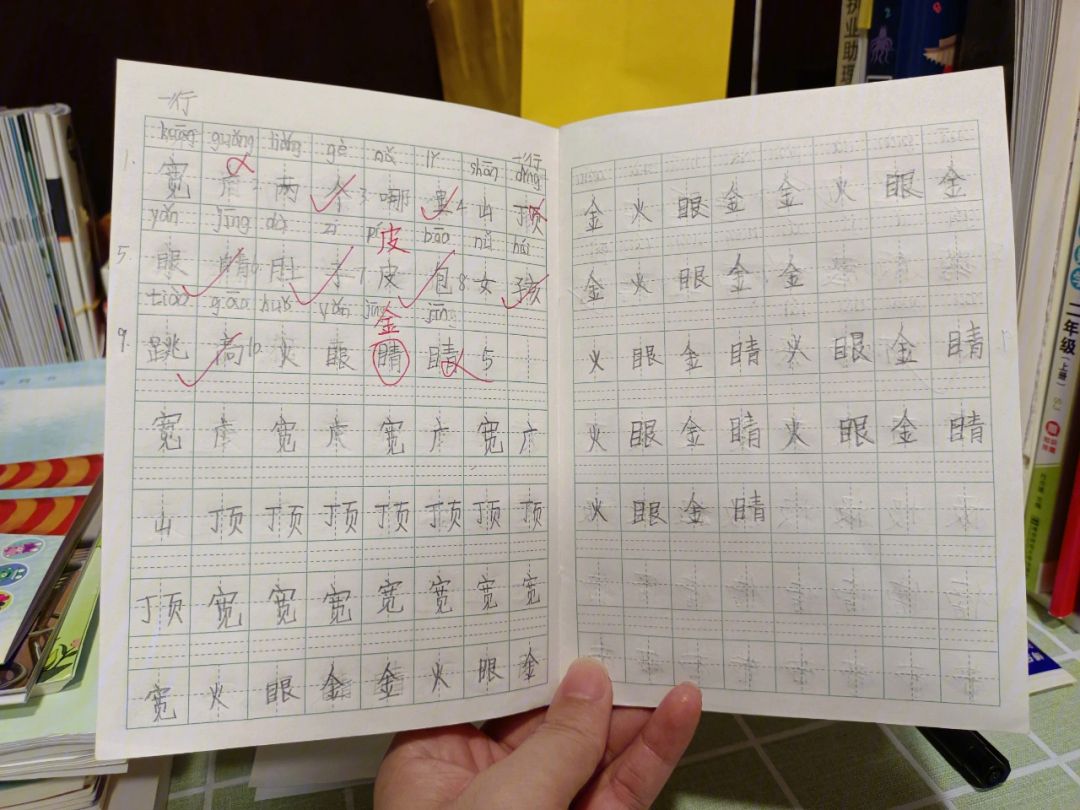 一行
一行
kuān guǎng liǎng gè nǎ lǐ shān dǐng
1. 宽 广 2 两 个 3. 哪 里 4 山 顶
yǎn jīng dù zi pí bāo nǚ hái
皮
5. 眼 睛 6 肚 子 7 皮 包 8 女 孩
tiào gāo huǒ yǎn jīng jīng
金
9. 跳 高 10. 火 眼 睛 睛 5
宽 广 宽 广 宽 广 宽 广
山 顶 顶 顶 顶 顶 顶 顶
顶 宽 宽 宽 宽 宽 宽 宽
宽 火 眼 金 金 火 眼 金
金 火 眼 金 金 火 眼 金
金 火 眼 金 金
火 眼 金 睛 火 眼 金 睛
火 眼 金 睛 火 眼 金 睛
火 眼 金 睛
执业助理
二年级
(上册)